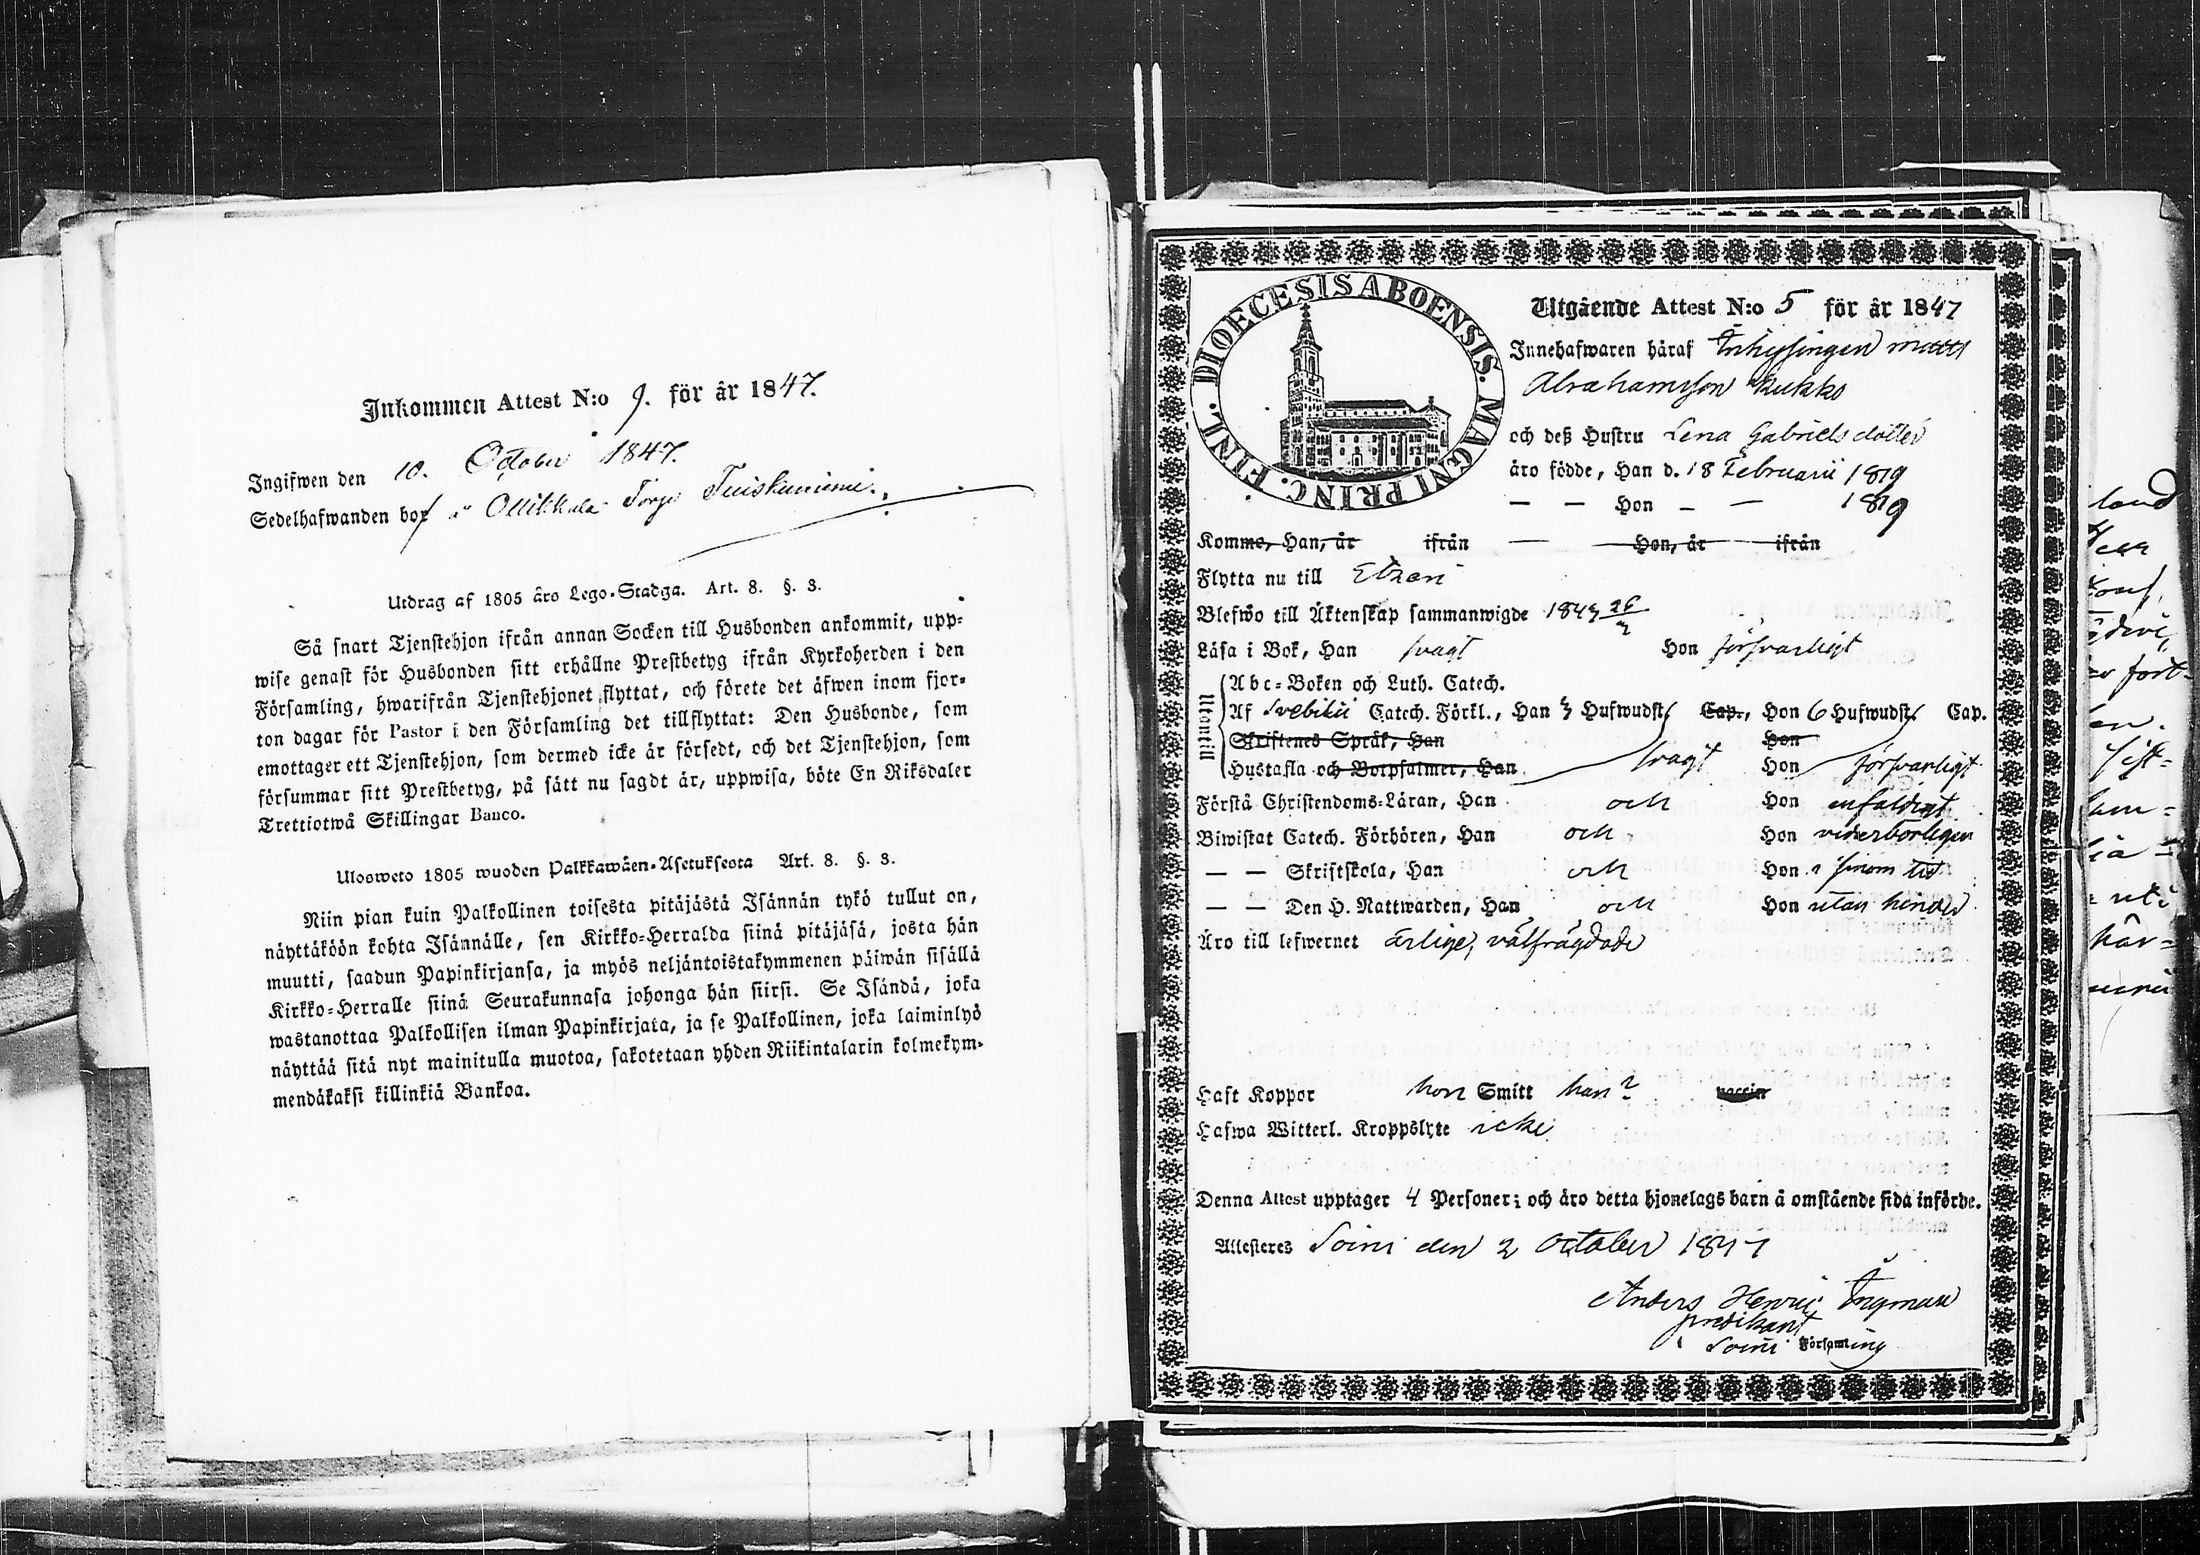 Inkommen Attest N:o 9. för år 1847.
Ingifwen den 10. October 1847.
Sedelhafwanden bor å Ollikkala Torp Tuiskuniemi.
Utdrag af 1805 års Lego-Stadga. Art. 8. §. 3.
Så snart Tjenstehjon ifrån annan Socken till Husbonden ankommit, upp-
wise genast för Husbonden sitt erhållne Prestbetyg ifrån Kyrkoherden i den
Församling, hwarifrån Tjenstehjonet flyttat, och förete det äfwen inom fjor-
ton dagar för Pastor i den Församling det tillflyttat: Den Husbonde, som
emottager ett Tjenstehjon, som dermed icke är försedt, och det Tjenstehjon, som
försummar sitt Prestbetyg, på sätt nu sagdt är, uppwisa, böte En Riksdaler
Trettiotwå Skillingar Banco.
Ulosweto 1805 wuoden Palkkawäen-Asetuksesta Art. 8. §. 3.
Niin pian kuin Palkollinen toisesta pitäjästä Isännän tykö tullut on,
näyttäköön kohta Isännälle, sen Kirkko-Herralda siinä pitäjäsä, josta hän
muutti, saadun Papinkirjansa, ja myös neljäntoistakymmenen päiwän sisällä
Kirkko-Herralle siinä Seurakunnasa johonga hän siirsi. Se Isändä, joka
wastanottaa Palkollisen ilman Papinkirjata, ja se Palkollinen, joka laiminlyö
näyttää sitä nyt mainitulla muotoa, sakotetaan yhden Riikintalarin kolmekym-
mendäkaksi killinkiä Bankoa.
DIOECESIS ABOENSIS. MAGNI PRINC. FINL.
Utgående Attest N:o 5 för år 1847
Innehafwaren häraf Inhysingen Matts
Abrahamsson Kukko
och deß Hustru Lena Gabrielsdotter
äro födde, Han d. 18 Februarii 1819
— — Hon — — 1819
Komme, Han, år ifrån — Hon, år ifrån
Flytta nu till Etzeri
Blefwo till Äktenskap sammanwigde
Läsa i Bok, Han svagt Hon försvarligt
Utantill
Abc-Boken och Luth. Catech.
Af Svebilii Catech. Förkl., Han Hufwudst. Cap., Hon 6 Hufwudst. Cap.
Skriftenes Språk, Han Hon
Hustafla och Botpsalmer, Han svagt Hon försvarligt
Förstå Christendoms-Läran, Han och Hon enfaldigt
Biwistat Catech. Förhören, Han och Hon vederbörligen
— — Skriftskola, Han och Hon i sinom tid
— — Den H. Nattwarden, Han och Hon utan hinder
Äro till lefwernet ärlige, välfrägdade
Haft Koppor hon Smitt han? vaccin
Hafwa Witterl. Kroppslyte icke
Denna Attest upptager 4 Personer; och äro detta hjonelags barn å omstående sida införde.
Attesteres Soini den 2 October 1847
Anders Henric Ingman
predikant
i Soini Församling
land
fort-
sist-
här-